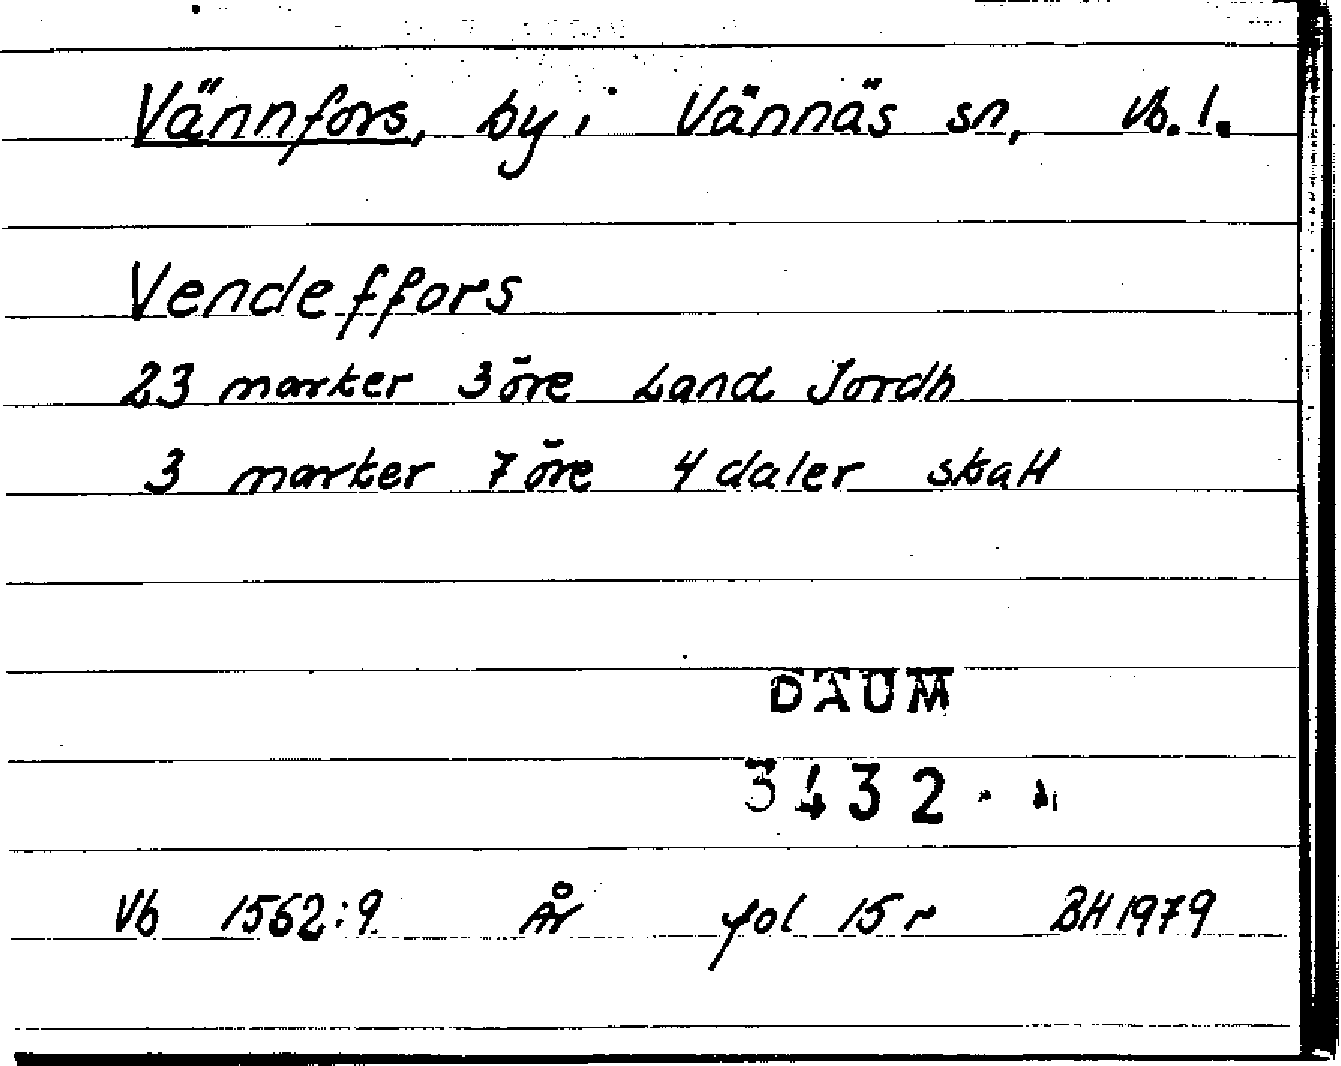 Vännfors, by i Vännäs sn, Vb. l.
Vendeffors
23 marker 3 öre Land Jordh
3 marker 7 öre 4 daler skatt
DAUM
3432
Vb 1562:9 År fol 15 r BH 1979